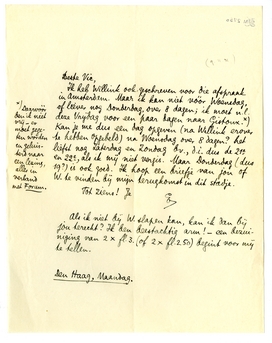 Beste Vic,
Ik heb Willink ook geschreven voor die afspraak
in Amsterdam. Maar ik kan niet vóór Woensdag,
of liever nog Donderdag, over 8 dagen; ik moet n.l.
deze Vrijdag voor een paar dagen naar Gistoux.*)
Kan je mee dus een dag opgeven (na Willink erover
te hebben opgebeld) na Woensdag over 8 dagen? Het
liefst nog Zaterdag en Zondag
en 22e, als ik mij niet vergis. Maar Donderdag (dus
is ook goed. Ik hoop een briefje van jou of
W. te vinden bij mijn terugkomst in dit stadje.
Tot ziens! Je
*) Dazwischen
in
verband
met Forum.
Als ik niet bij W. slapen kan, kan ik dan bij
jou terecht? Ik ben beestachtig arm! – een bezui-
niging van 2 x fl 3. (of 2 x fl. 2.50) begint voor mij
te tellen.
Den Haag, Maandag.